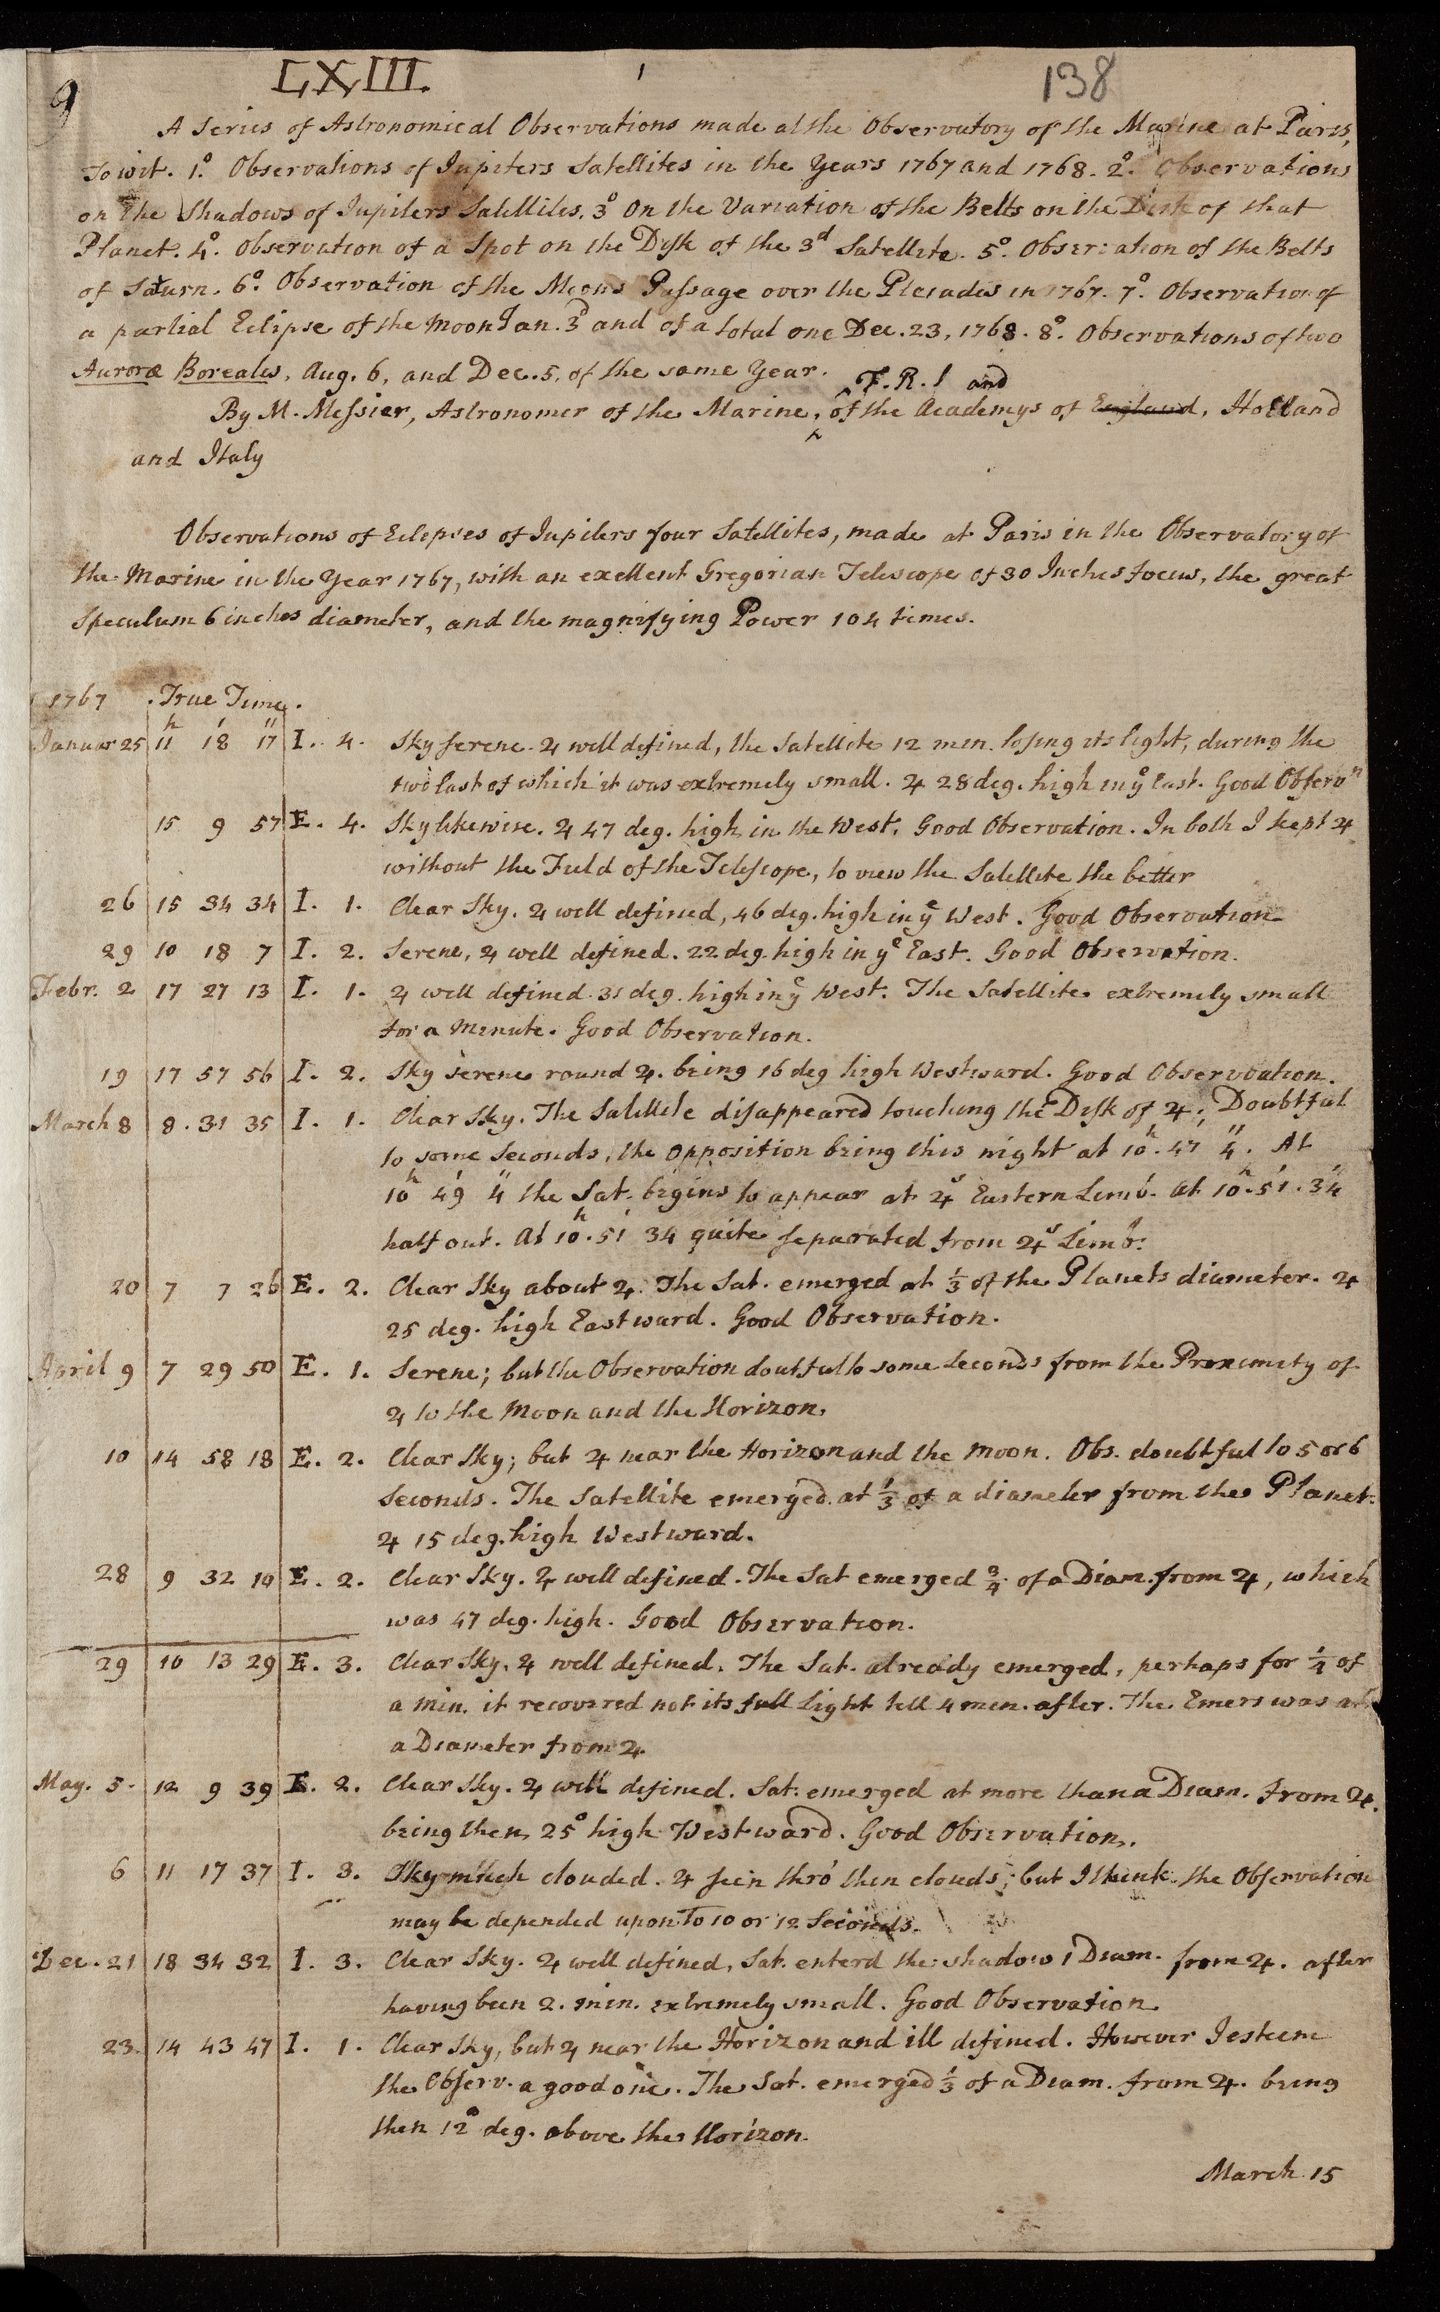 9
LXIII.
1
138
A Series of Astronomical Observations made at the Observatory of the Marine at Paris,
to wit. 1.° Observations of Jupiters Satellites in the Years 1767 and 1768. 2.° Observations
on the Shadows of Jupiters Satellites. 3° On the Variation of the Belts on the Disk of that
Planet. 4.° Observation of a Spot on the Disk of the 3d Satellite. 5.° Observation of the Belts
of Saturn. 6.° Observation of the Moons Passage over the Pleiades in 1767. 7.° Observation of
a partial Eclipse of the Moon Jan. 3d and of a total one Dec. 23, 1768. 8.° Observations of two
Auroræ Boreales, Aug. 6, and Dec. 5, of the same Year.
F. R. S and
By M. Messier, Astronomer of the Marine, of the Academys of England, Holland
and Italy
Observations of Eclipses of Jupiters four Satellites, made at Paris in the Observatory of
the Marine in the Year 1767, with an exellent Gregorian Telescope of 30 Inches focus, the great
Speculum 6 inches diameter, and the magnifying Power 104 times.
1767 True Time.
Januar 25 11h 18' 17'' I. 4. Sky serene. ♃ well defined, the Satellite 12 min. losing its light, during the
two last of which it was extremely small. ♃ 28 deg. high in ye East. Good Observn
15 9 57 E. 4. Sky likewise. ♃ 47 deg. high in the West. Good Observation. In both I kept ♃
without the Field of the Telescope, to view the Satellite the better
26 15 34 34 I. 1. Clear Sky. ♃ well defined, 46 deg. high in ye West. Good Observation
29 10 18 7 I. 2. Serene, ♃ well defined. 22 deg. high in ye East. Good Observation.
Febr. 2 17 27 13 I. 1. ♃ well defined 31 deg. high in ye West. The Satellite extremely small
for a Minute. Good Observation.
19 17 57 56 I. 2. Sky serene round ♃. being 16 deg high Westward. Good Observation.
March 8 8. 31 35 I. 1. Clear Sky. The Satellite disappeared touching the Disk of ♃; Doubtful
to some Seconds, the opposition being this night at 10h. 47' 4''. At
10h 49' 4'' the Sat. begins to appear at ♃s Eastern Limb. at 10h. 51'. 34''
half out. At 10h. 51' 34 quite separated from ♃s Limb.
20 7 7 26 E. 2. Clear Sky about ♃. The Sat. emerged at 1/3 of the Planets diameter. ♃
25 deg. high Eastward. Good Observation.
April 9 7 29 50 E. 1. Serene; but the Observation doubtful to some Seconds from the Proximity of
♃ to the Moon and the Horizon.
10 14 58 18 E. 2. Clear Sky; but ♃ near the Horizon and the Moon. Obs. doubtful to 5 or 6
Seconds. The Satellite emerged at 1/3 of a diameter from the Planet.
♃ 15 deg. high Westward.
28 9 32 10 E. 2. Clear Sky. ♃ well defined. The Sat emerged 3/4 of a Diam. from ♃, which
was 47 deg. high. Good Observation.
29 10 13 29 E. 3. Clear Sky. ♃ well defined. The Sat. already emerged, perhaps for 1/4 of
a min. it recovered not its full Light till 4 min. after. The Emers was at
a Diameter from ♃
May. 5. 12 9 39 E. 2. Clear Sky. ♃ well defined. Sat. emerged at more than a Diam. from ♃.
being then 25° high Westward. Good Observation.
6 11 17 37 I. 3. Sky much clouded. ♃ seen thro' thin clouds; but I think the Observation
may be depended upon to 10 or 12 Seconds.
Dec. 21 18 34 32 I. 3. Clear Sky. ♃ well defined, Sat. enterd the shadow 1 Diam. from ♃. after
having been 2. min. extremely small. Good Observation.
23. 14 43 47 I. 1. Clear Sky, but ♃ near the Horizon and ill defined. However I esteem
the Observ. a good one. The Sat. emerged 1/3 of a Diam. from ♃. being
then 12° deg. above the Horizon.
March 15